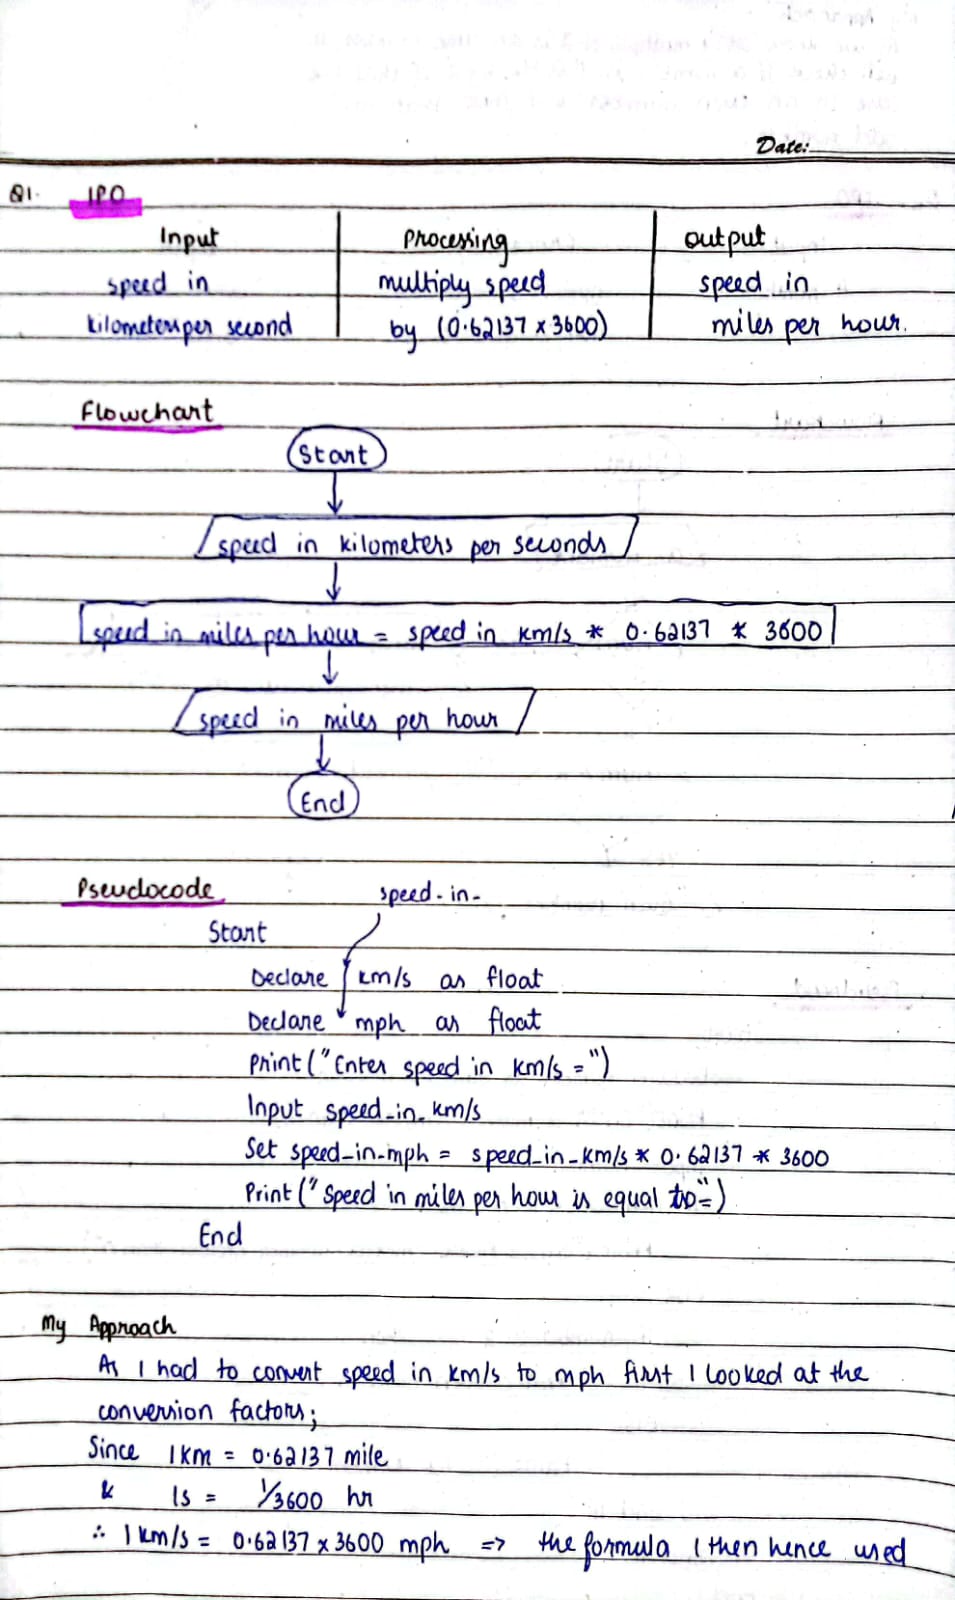 Date:
Q1. IPO
Input Processing output
speed in multiply speed speed in
kilometers per second by (0.62137 x 3600) miles per hour.
Flowchart
Start
speed in kilometers per seconds
speed in miles per hour = speed in km/s * 0.62137 * 3600
speed in miles per hour
End
Pseudocode
speed-in-
Start
Declare km/s as float
Declare mph as float
Print ("Enter speed in km/s =")
Input speed_in_km/s
Set speed_in_mph = speed_in_km/s * 0.62137 * 3600
Print ("Speed in miles per hour is equal to=")
End
My Approach
As I had to convert speed in km/s to mph first I looked at the
conversion factors;
Since 1 km = 0.62137 mile
& 1s = 1/3600 hr
∴ 1 km/s = 0.62137 x 3600 mph => the formula I then hence used